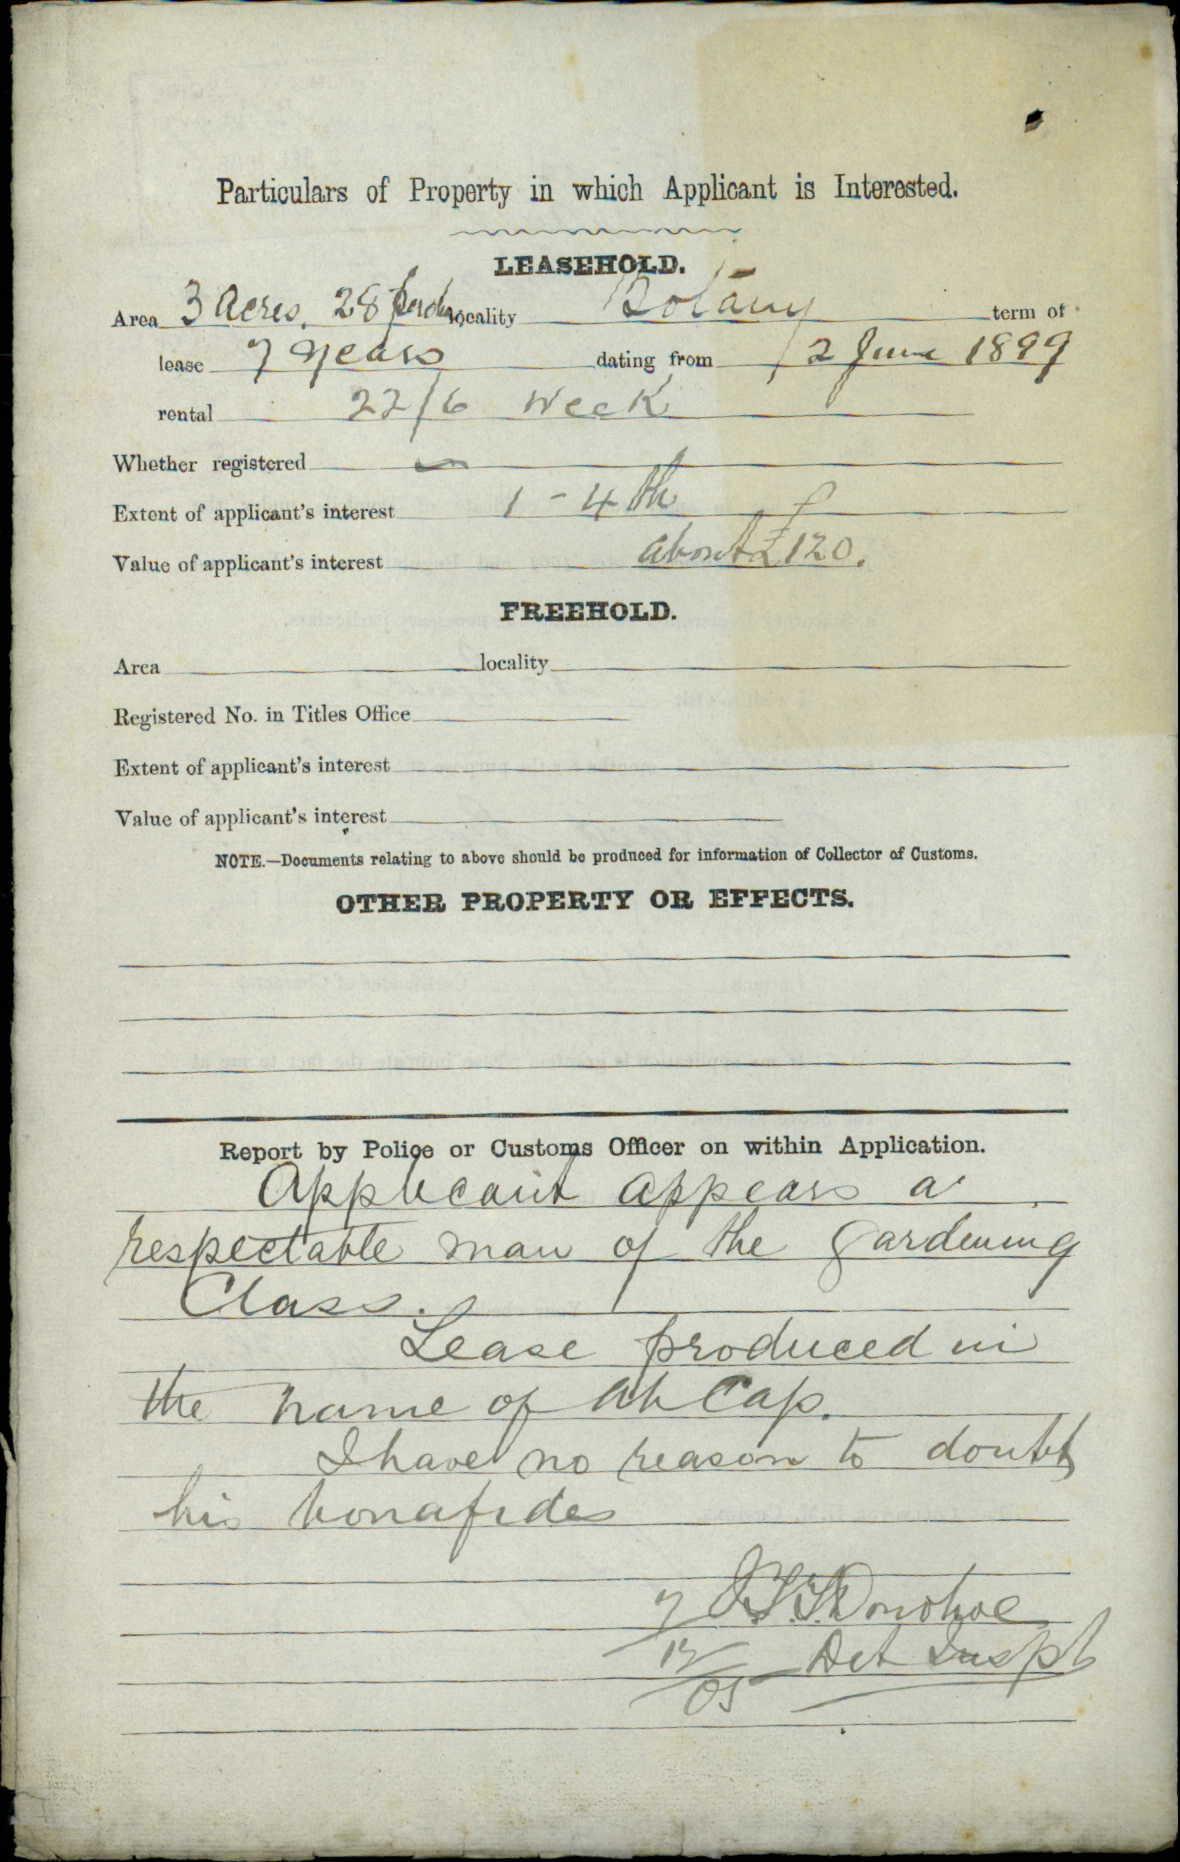 Particulars of Property in which Applicant is Interested.
LEASEHOLD.
Area 3 Acres, 28 perch locality Botany term of
lease 7 years dating from 12 June 1899
rental 22/6 Week
Whether registered —
Extent of applicant's interest 1-4th
Value of applicant's interest about £120.
FREEHOLD.
Area locality
Registered No. in Titles Office
Extent of applicant's interest
Value of applicant's interest
NOTE.—Documents relating to above should be produced for information of Collector of Customs.
OTHER PROPERTY OR EFFECTS.
Report by Police or Customs Officer on within Application.
Applicant appears a
respectable man of the gardening
Class.
Lease produced in
the name of Ah Cap.
I have no reason to doubt
his bonafides
7 Donohoe
12 Det Inspt
05